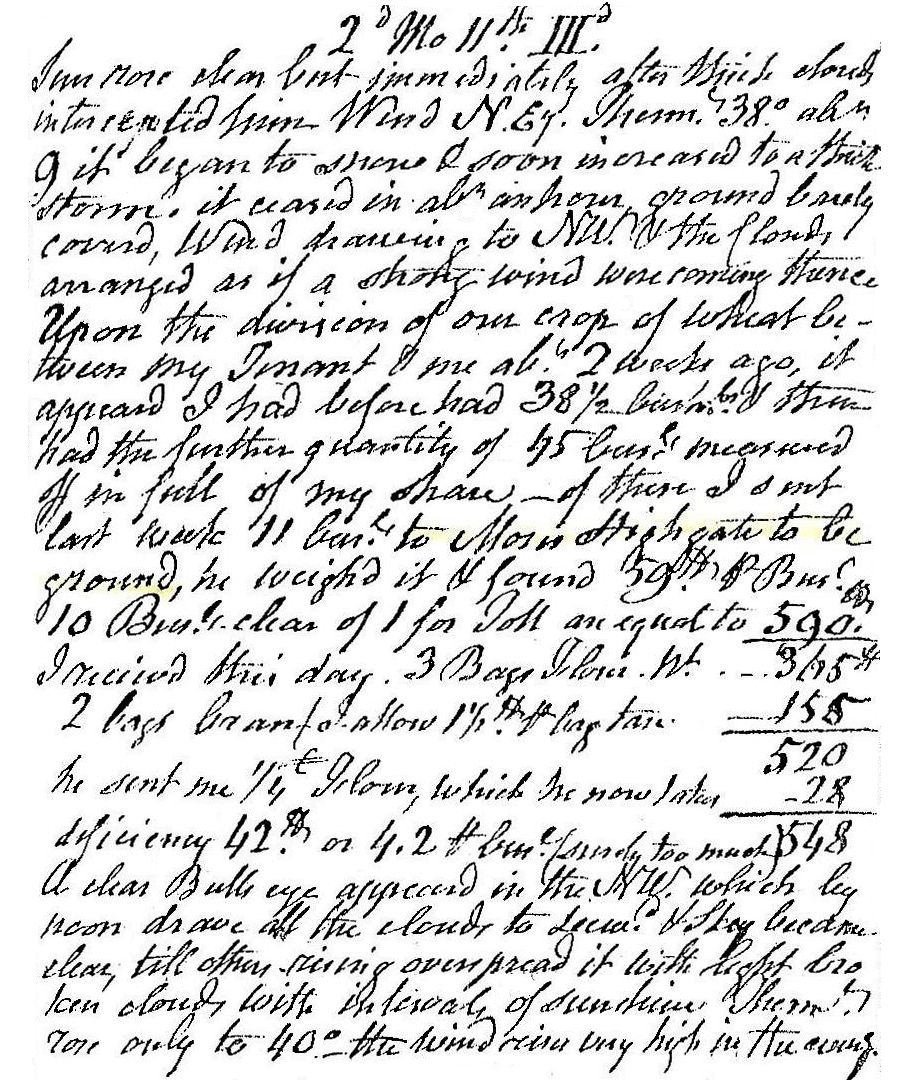 2d Mo 11th IIId
Sun rose clear but immediately after thick clouds
intercepted him Wind N.Ey. Therm.r 38.o abt
9 it began to snow & soon increased to a thick
storm. it ceased in abt an hour, ground barely
coverd, Wind drawing to NW. & the Clouds
arranged as if a strong wind were coming thence
Upon the division of our crop of wheat be-
tween my Tenant & me abt 2 weeks ago, it
appeard I had before had 38 1/2 bushls & then
had the further quantity of 45 busls measured
off in full of my share – of these I sent
last week 11 busls to Moses Highgate to be
ground, he weighd it & found 59 lb p Busl
10 Busls clear of 1 for Toll are equal to 590. lb
I receivd this day. 3 Bags Flour. Wt - 365 lb
2 bags bran (I allow 1 1/2 lb p bag tare — 155
520
he sent me 1/4 C Flour, which he now takes - 28
deficiency 42. lb or 4.2 p busl (surely too much) 548
A clear Bulls eye appeard in the NW. which by
noon drave all the clouds to Leewd & Sky became
clear, till others rising overspread it with light bro
ken clouds with intervals of sunshine Thermr
rose only to 40o the wind rises very high in the eveng.